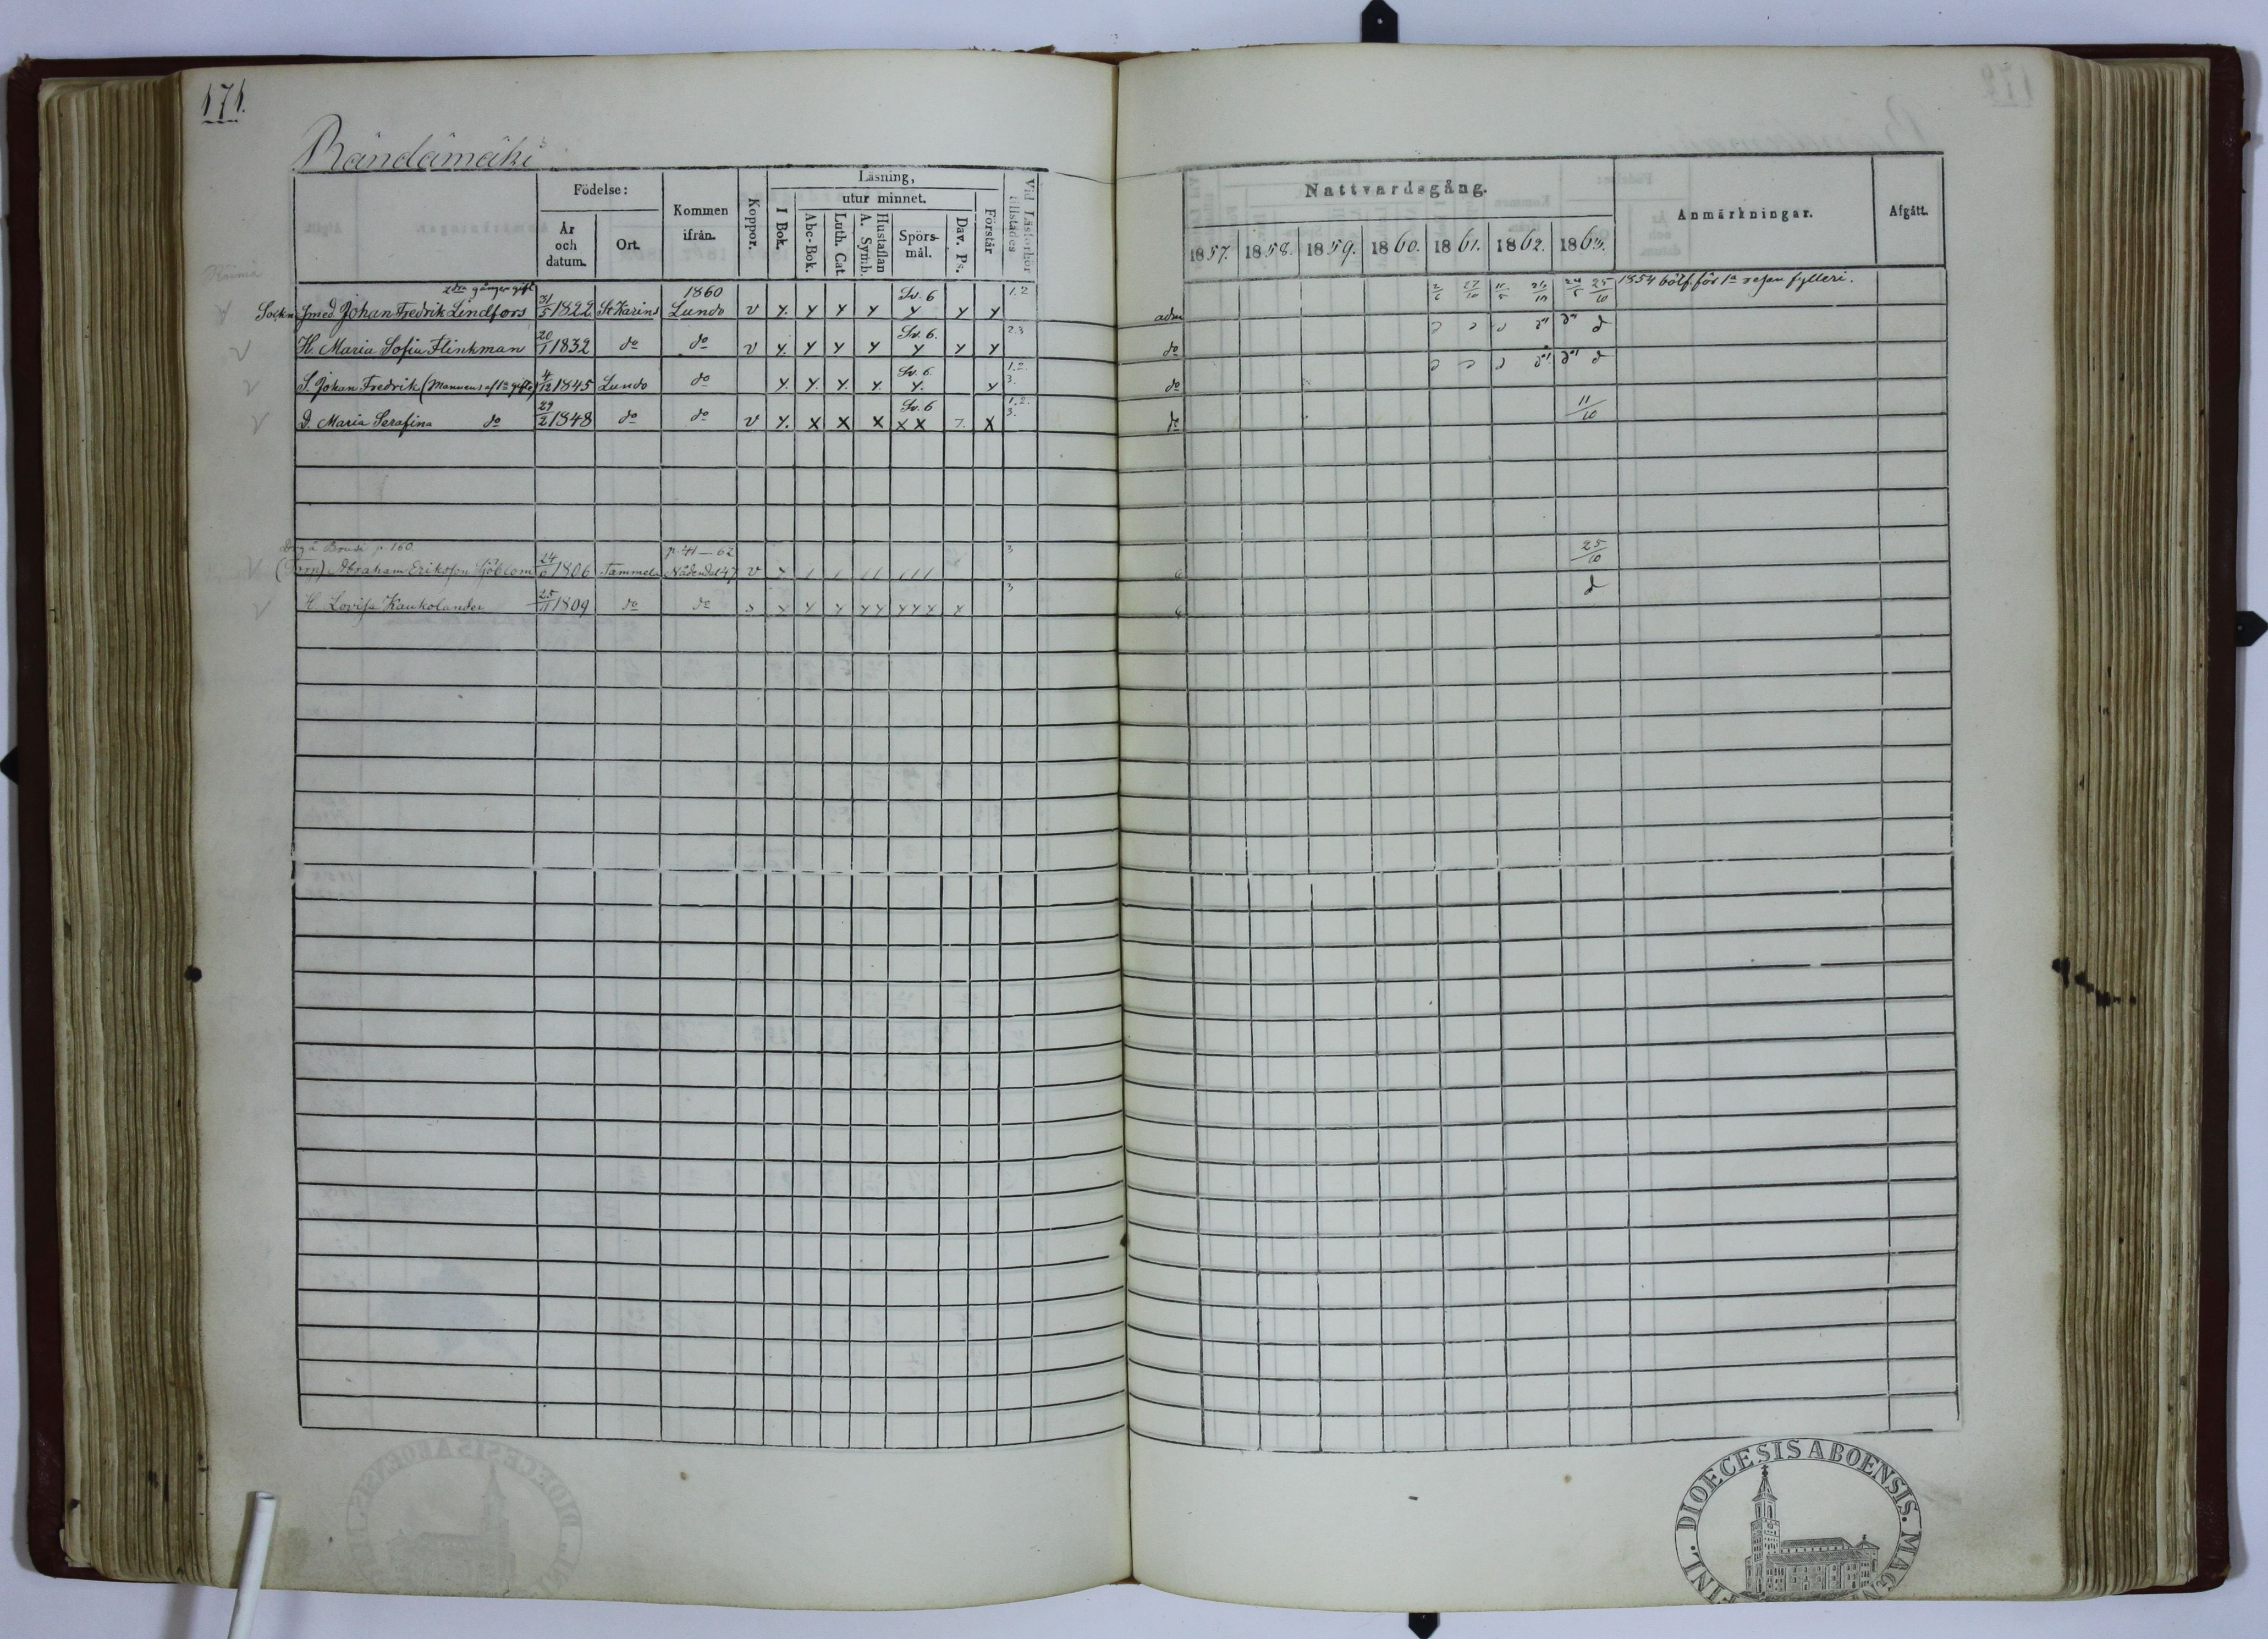 171.
Rändämäki
Födelse:
År och datum.
Ort.
Kommen ifrån.
Koppor.
Läsning,
utur minnet.
I Bok.
Abc-Bok.
Luth. Cat.
Hustaflan A. Symb.
Spörs-mål.
Dav. Ps.
Förstår
Vid Läsförhör tillstädes
Nattvardsgång.
1857. 1858. 1859. 1860. 1861. 1862. 1863.
Anmärkningar.
Afgått.
2dra gången gift 1860 Sv. 6 1.2
Sockne Smed Johan Fredrik Lindfors 31/5 1822 St Karins Lundo v y. y y y y y y adm 2/6 27/10 11/5 24/5 25/10 1854 bötf. för 1a resan fylleri.
H. Maria Sofia Flinkman 20/1 1832 do do v y. y y y Sv. 6. y y y 2.3 do
S. Johan Fredrik (Mannens af 1a gifte) 4/12 1845 Lundo do y. y. y. y Sv. 6 y. y 1.2. 3. do
D. Maria Serafina do 29/2 1848 do do v y. x x x Sv. 6 x x 7. x 1.2. 3. do 11/10
Brusi p. 160 p. 41–62 3
(Torp) Abraham Eriksson Sjöblom 24/ 1806 Tammela Nådendal 47 v 25/10
H. Lovisa Kaukolander 25/11 1809 do do y y y y y y y y 3
FINL. DIOECESIS ABOENSIS. MAGN